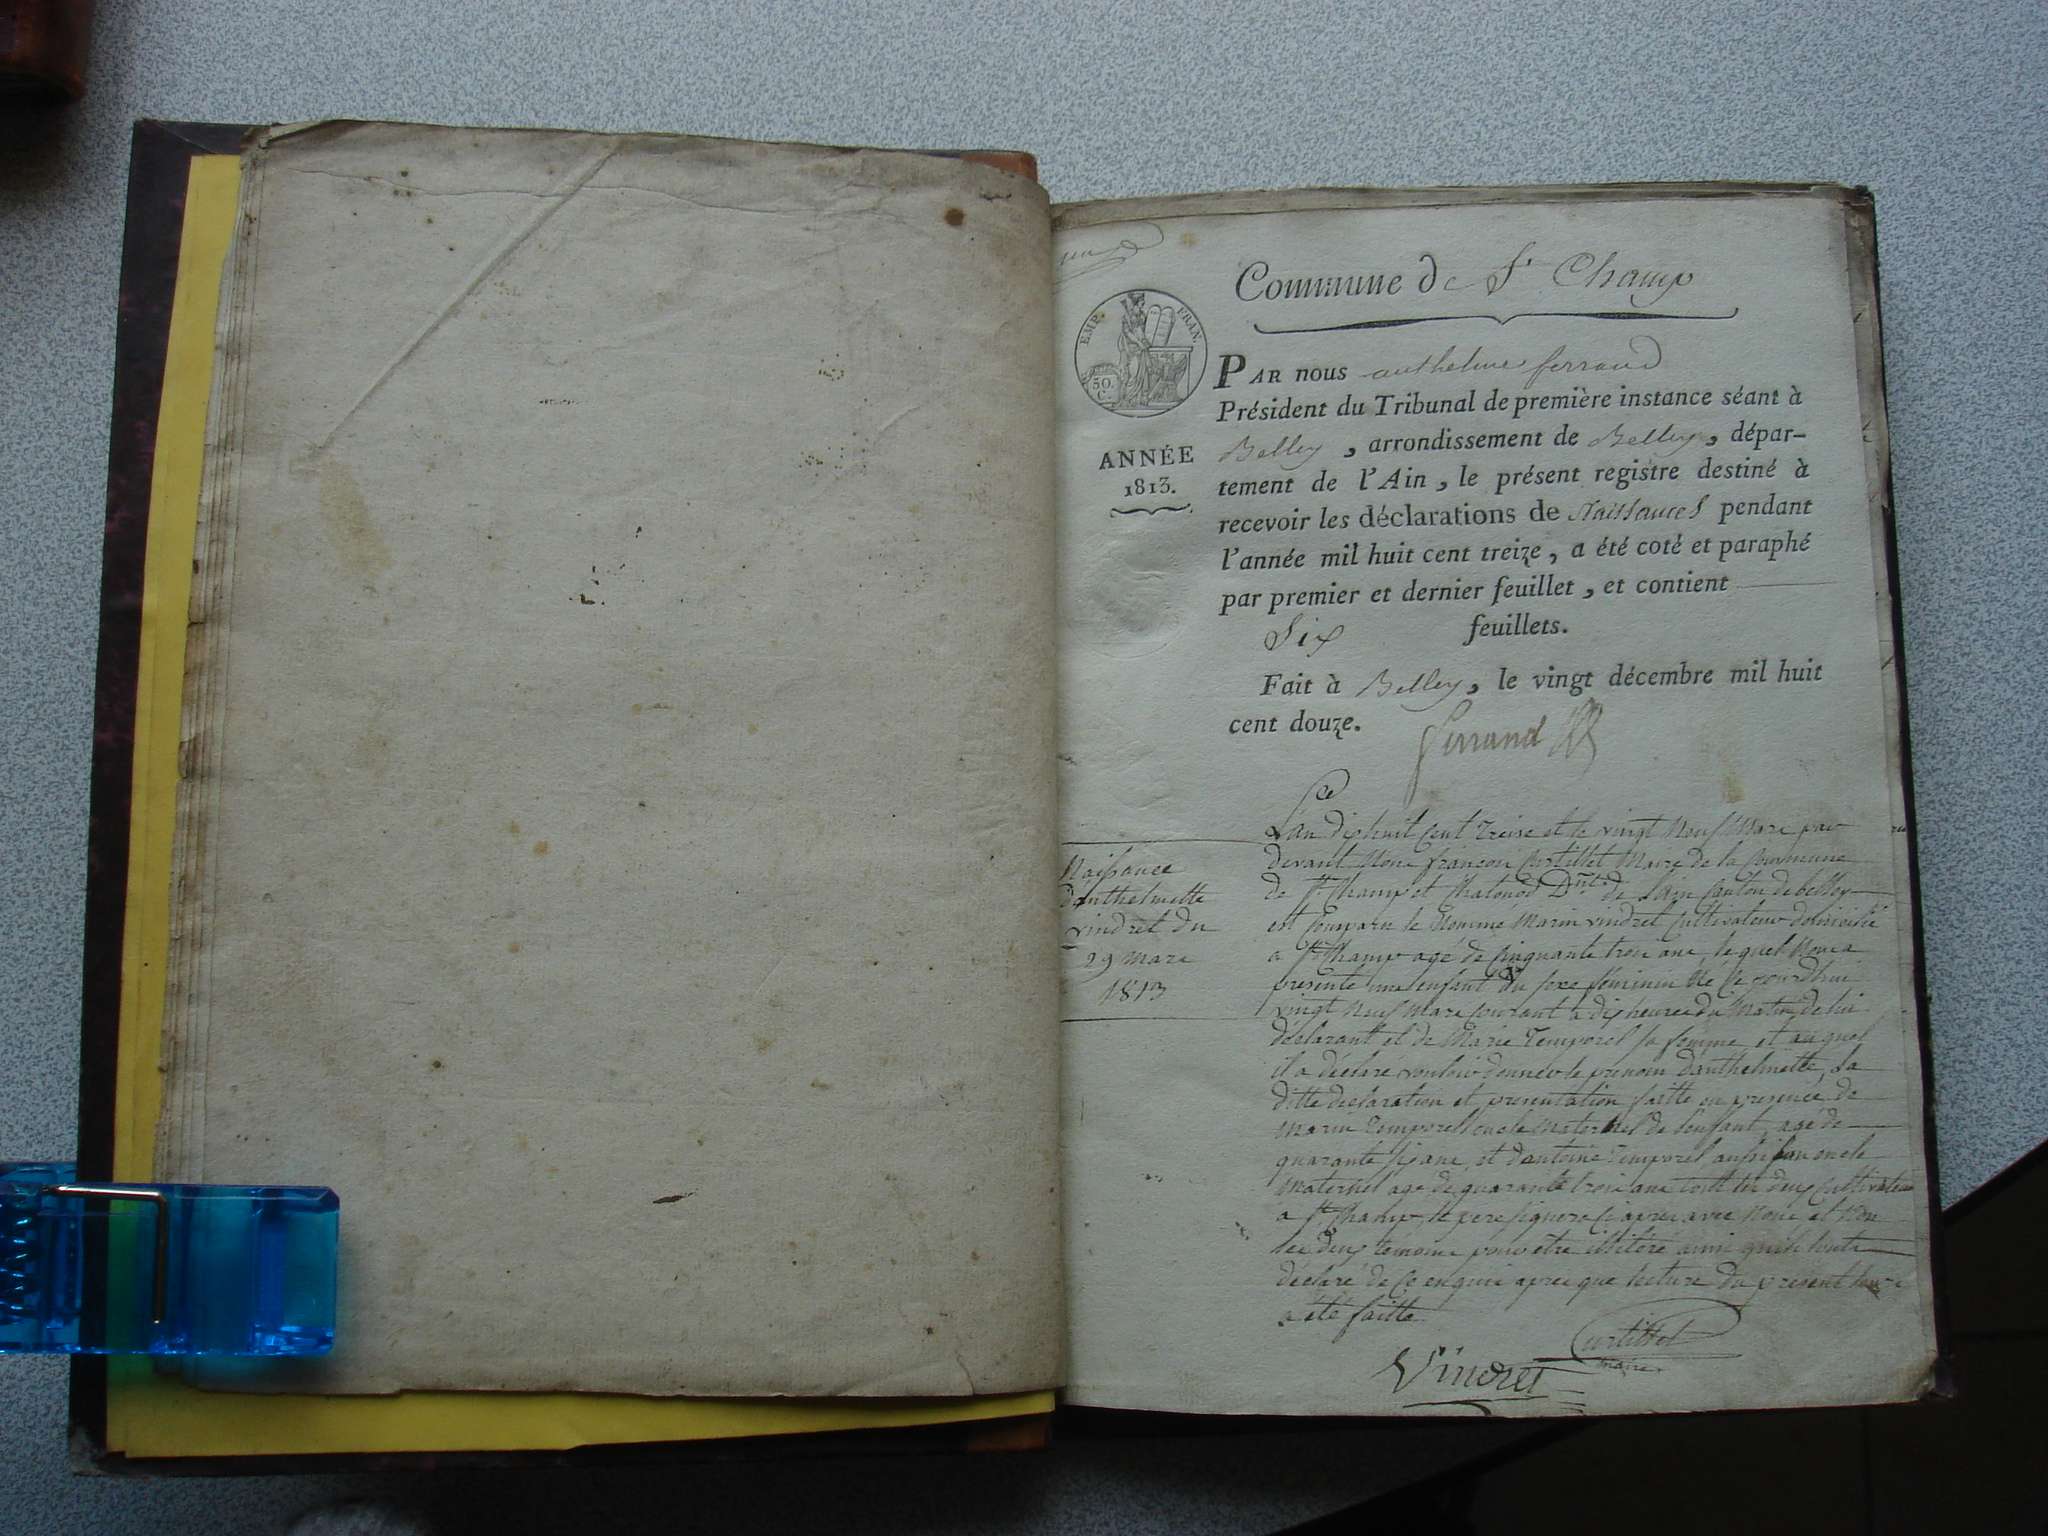 Commune de St Champ
EMP. FRAN.
50.
C.
ANNÉE
1813.
PAR nous anthelme ferrand
Président du Tribunal de première instance séant à
Belley, arrondissement de Belley, dépar-
tement de l'Ain, le présent registre destiné à
recevoir les déclarations de Naissances pendant
l'année mil huit cent treize, a été coté et paraphé
par premier et dernier feuillet, et contient
Six feuillets.
Fait à Belley, le vingt décembre mil huit
cent douze.
Ferrand
Naissance
danthelmette
vindret du
29 mars
1813
Lan dixhuit Cent Treise et le vingt Neuf Mars par
devant Nous françois Curtillet Maire de la Commune
de St Champ et Chatonod Dmt. de Lain Canton de belley
est comparu le Nomme Marin vindret Cultivateur domicilié
a St Champ agé de Cinquante trois ans, le quel Nous a
presenté une enfant du sexe féminin Né Ce jourdhui
vingt Neuf Mars courant a dix heures du Matin, de lui
déclarant et de Marie Temporel sa femme et au quel
il a déclaré vouloir donner le prenom danthelmette, La
ditte declaration et presentation faitte en presence de
Marin Temporel oncle maternel de Lenfant, agé de
quarante six ans, et dantoine Temporel aussi son oncle
Maternel agé de quarante trois ans tout les deux Cultivateur
a St Champ, le pere signera Ci apres avec Nous et Non
les deux témoins pour être illitéré ainsi quils lont
déclaré de Ce enquis apres que lecture du présent leur
a été faitte
Curtillet
maire
Vindret